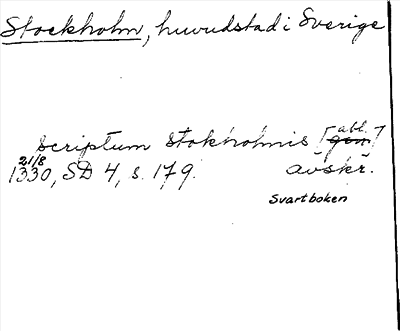 Stockholm, huvudstad i Sverige
scriptum Stokholmis [gen. abl.]
21/8
1330, SD 4, s. 179. avskr.
Svartboken